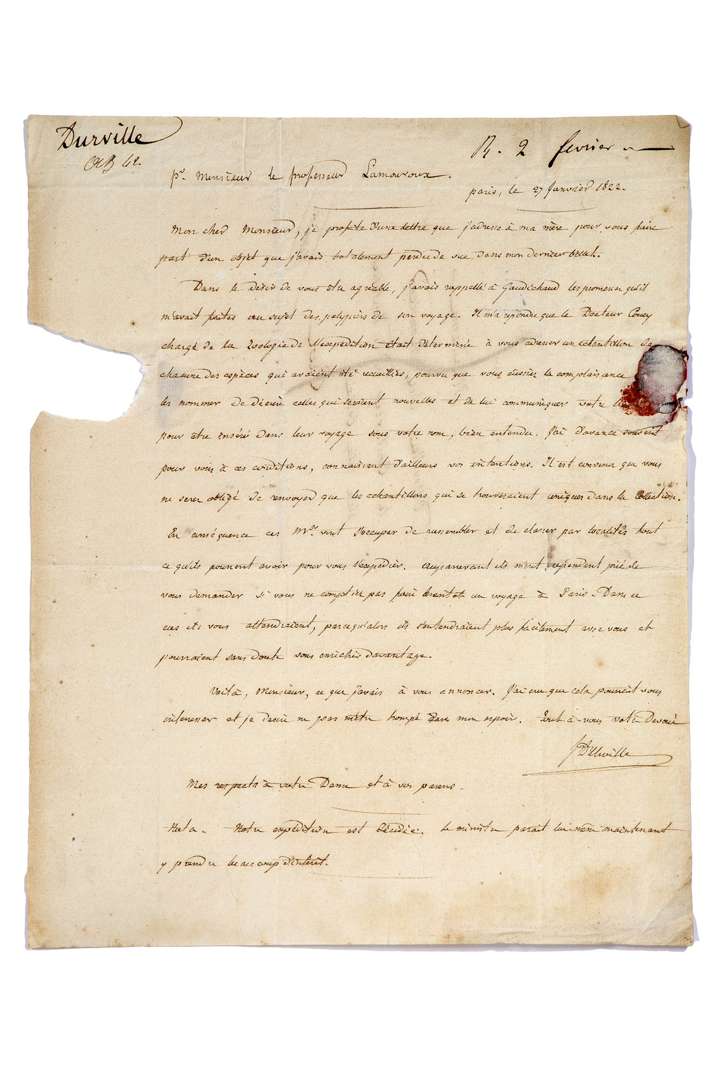 Durville
R. 2 février
pr. Monsieur le professeur Lamouroux.
paris, le 27 Janvier 1822.
Mon cher Monsieur, je profite d'une lettre que j'adresse à ma mère pour vous faire
part d'un objet que j'avais totalement perdu de vue dans mon dernier billet.
Dans le desir de vous être agréable, j'avais rappellé à Gaudichaud les promesses qu'il
m'avait faites au sujet des polypiers de son voyage. Il m'a répondu que le Docteur
chargé de la Zoologie de l'expédition était déterminé à vous adresser un échantillon de
chacune des espèces qui avaient été recueillies, pourvu que vous eussiez la complaisance
les nommer de décrire celles qui seraient nouvelles et de lui communiquer votre
pour être inséré dans leur voyage sous votre nom, bien entendu. J'ai d'avance consenti
pour vous à ces conditions, connaissant d'ailleurs vos intentions. Il est convenu que vous
ne serez obligé de renvoyer que les échantillons qui se trouveraient uniques dans la Collection.
En conséquence ces Mrs. vont s'occuper de rassembler et de classer par localités tout
ce qu'ils pourront avoir pour vous l'expédier. Auparavant ils m'ont cependant prié de
vous demander si vous ne comptiez pas faire bientôt un voyage à Paris. Dans ce
cas ils vous attendraient, parcequ'alors ils s'entendraient plus facilement avec vous et
pourraient sans doute vous enrichir davantage.
Voilà, Monsieur, ce que j'avais à vous annoncer. J'ai cru que cela pourrait vous
intéresser et je desire ne pas m'être trompé dans mon espoir. Tout à vous votre Dévoué
D'Urville
Mes respects à votre Dame et à vos parens.
Nota. Notre expédition est décidée. Le ministre parait lui même maintenant
y prendre beaucoup d'intérêt.